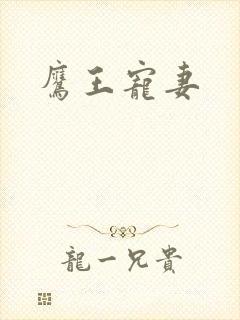 鷹王寵妻
龍一兄貴